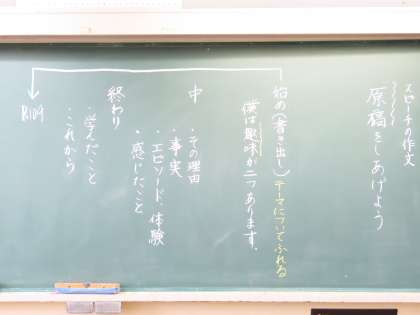 スピーチの作文
原稿をしあげよう
始め(書き出し)テーマについてふれる
僕は趣味が二つあります。
中
・その理由
・事実
・エピソード、体験
・感じたこと
終わり
・学んだこと
・これから
P.109